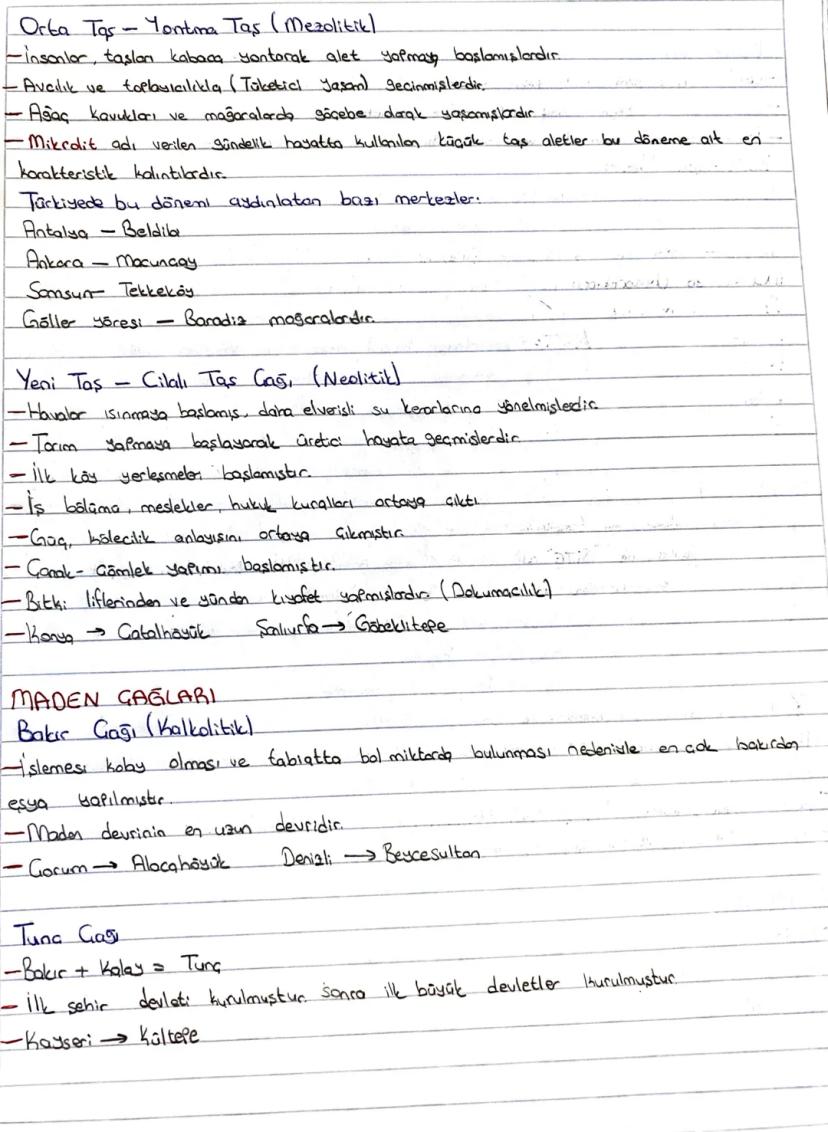 Orta Taş – Yontma Taş (Mezolitik)
– İnsanlar, taşları kabaca yontarak alet yapmaya başlamışlardır.
– Avcılık ve toplayıcılıkla (Tüketici Yaşam) geçinmişlerdir.
– Ağaç kavukları ve mağaralarda göçebe olarak yaşamışlardır.
– Mikrolit adı verilen gündelik hayatta kullanılan küçük taş aletler bu döneme ait en
karakteristik kalıntılardır.
Türkiyede bu dönemi aydınlatan bazı merkezler:
Antalya – Beldibi
Ankara – Macunçay
Samsun – Tekkeköy
Göller yöresi – Baradiz mağaralarıdır.
Yeni Taş – Cilalı Taş Çağı (Neolitik)
– Havalar ısınmaya başlamış, daha elverişli su kenarlarına yönelmişlerdir.
– Tarım yapmaya başlayarak üretici hayata geçmişlerdir.
– İlk köy yerleşmeleri başlamıştır.
– İş bölümü, meslekler, hukuk kuralları ortaya çıktı.
– Göç, kölecilik anlayışını ortaya çıkmıştır.
– Çanak-Çömlek yapımı başlamıştır.
– Bitki liflerinden ve yünden kıyafet yapmışlardır. (Dokumacılık)
– Konya → Çatalhöyük Şanlıurfa → Göbeklitepe
MADEN ÇAĞLARI
Bakır Çağı (Kalkolitik)
– İşlemesi kolay olması ve tabiatta bol miktarda bulunması nedeniyle en çok bakırdan
eşya yapılmıştır.
– Maden devrinin en uzun devridir.
– Çorum → Alacahöyük Denizli → Beycesultan
Tunç Çağı
– Bakır + Kalay = Tunç
– İlk şehir devleti kurulmuştur. Sonra ilk büyük devletler kurulmuştur.
– Kayseri → Kültepe